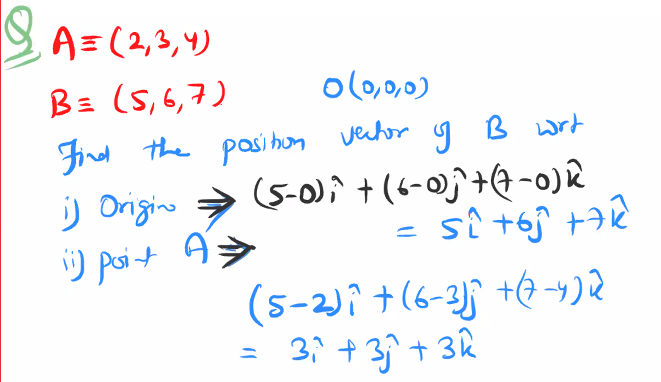 Q A ≡ (2,3,4)
B ≡ (5,6,7) O(0,0,0)
Find the position vector of B wrt
i) Origin ⇒ (5-0)î + (6-0)ĵ + (7-0)k̂
= 5î + 6ĵ + 7k̂
ii) point A ⇒
(5-2)î + (6-3)ĵ + (7-4)k̂
= 3î + 3ĵ + 3k̂